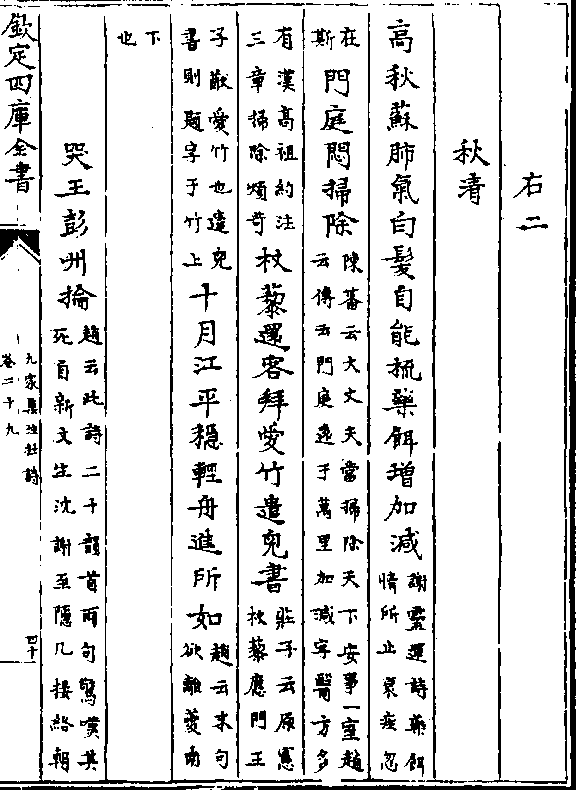 右二
秋清
高秋蘇肺氣白髪自能梳藥餌増加減謝靈運詩藥餌
情所止衰疾忽
在
斯門庭悶掃除陳蕃云大丈夫當掃除天下安事一室趙
云傳云門庚逺于萬里加減字醫方多
有漢高祖約注
三章掃除煩苛杖藜還客拜愛竹遣兒書莊子云原憲
杖藜應門王
子猷愛竹也遣兒
書則題字于竹上十月江平穩輕舟進所如趙云末句
欲離夔南
下
也
哭王彭州掄趙云此詩二十韻首兩句驚嘆其
死自新文生沈謝至隱几接終朝
欽定四庫全書
九家集注杜詩
卷二十九
四十